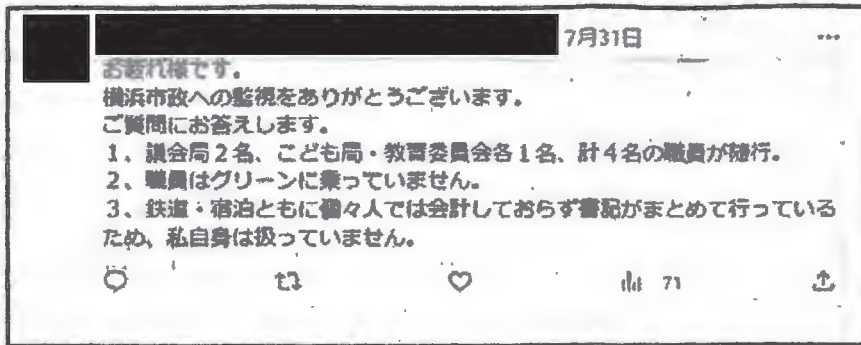 7月31日
お疲れ様です。
横浜市政への監視をありがとうございます。
ご質問にお答えします。
1、議会局2名、こども局・教育委員会各1名、計4名の職員が随行。
2、職員はグリーンに乗っていません。
3、鉄道・宿泊ともに個々人では会計しておらず書記がまとめて行っている
ため、私自身は扱っていません。
71